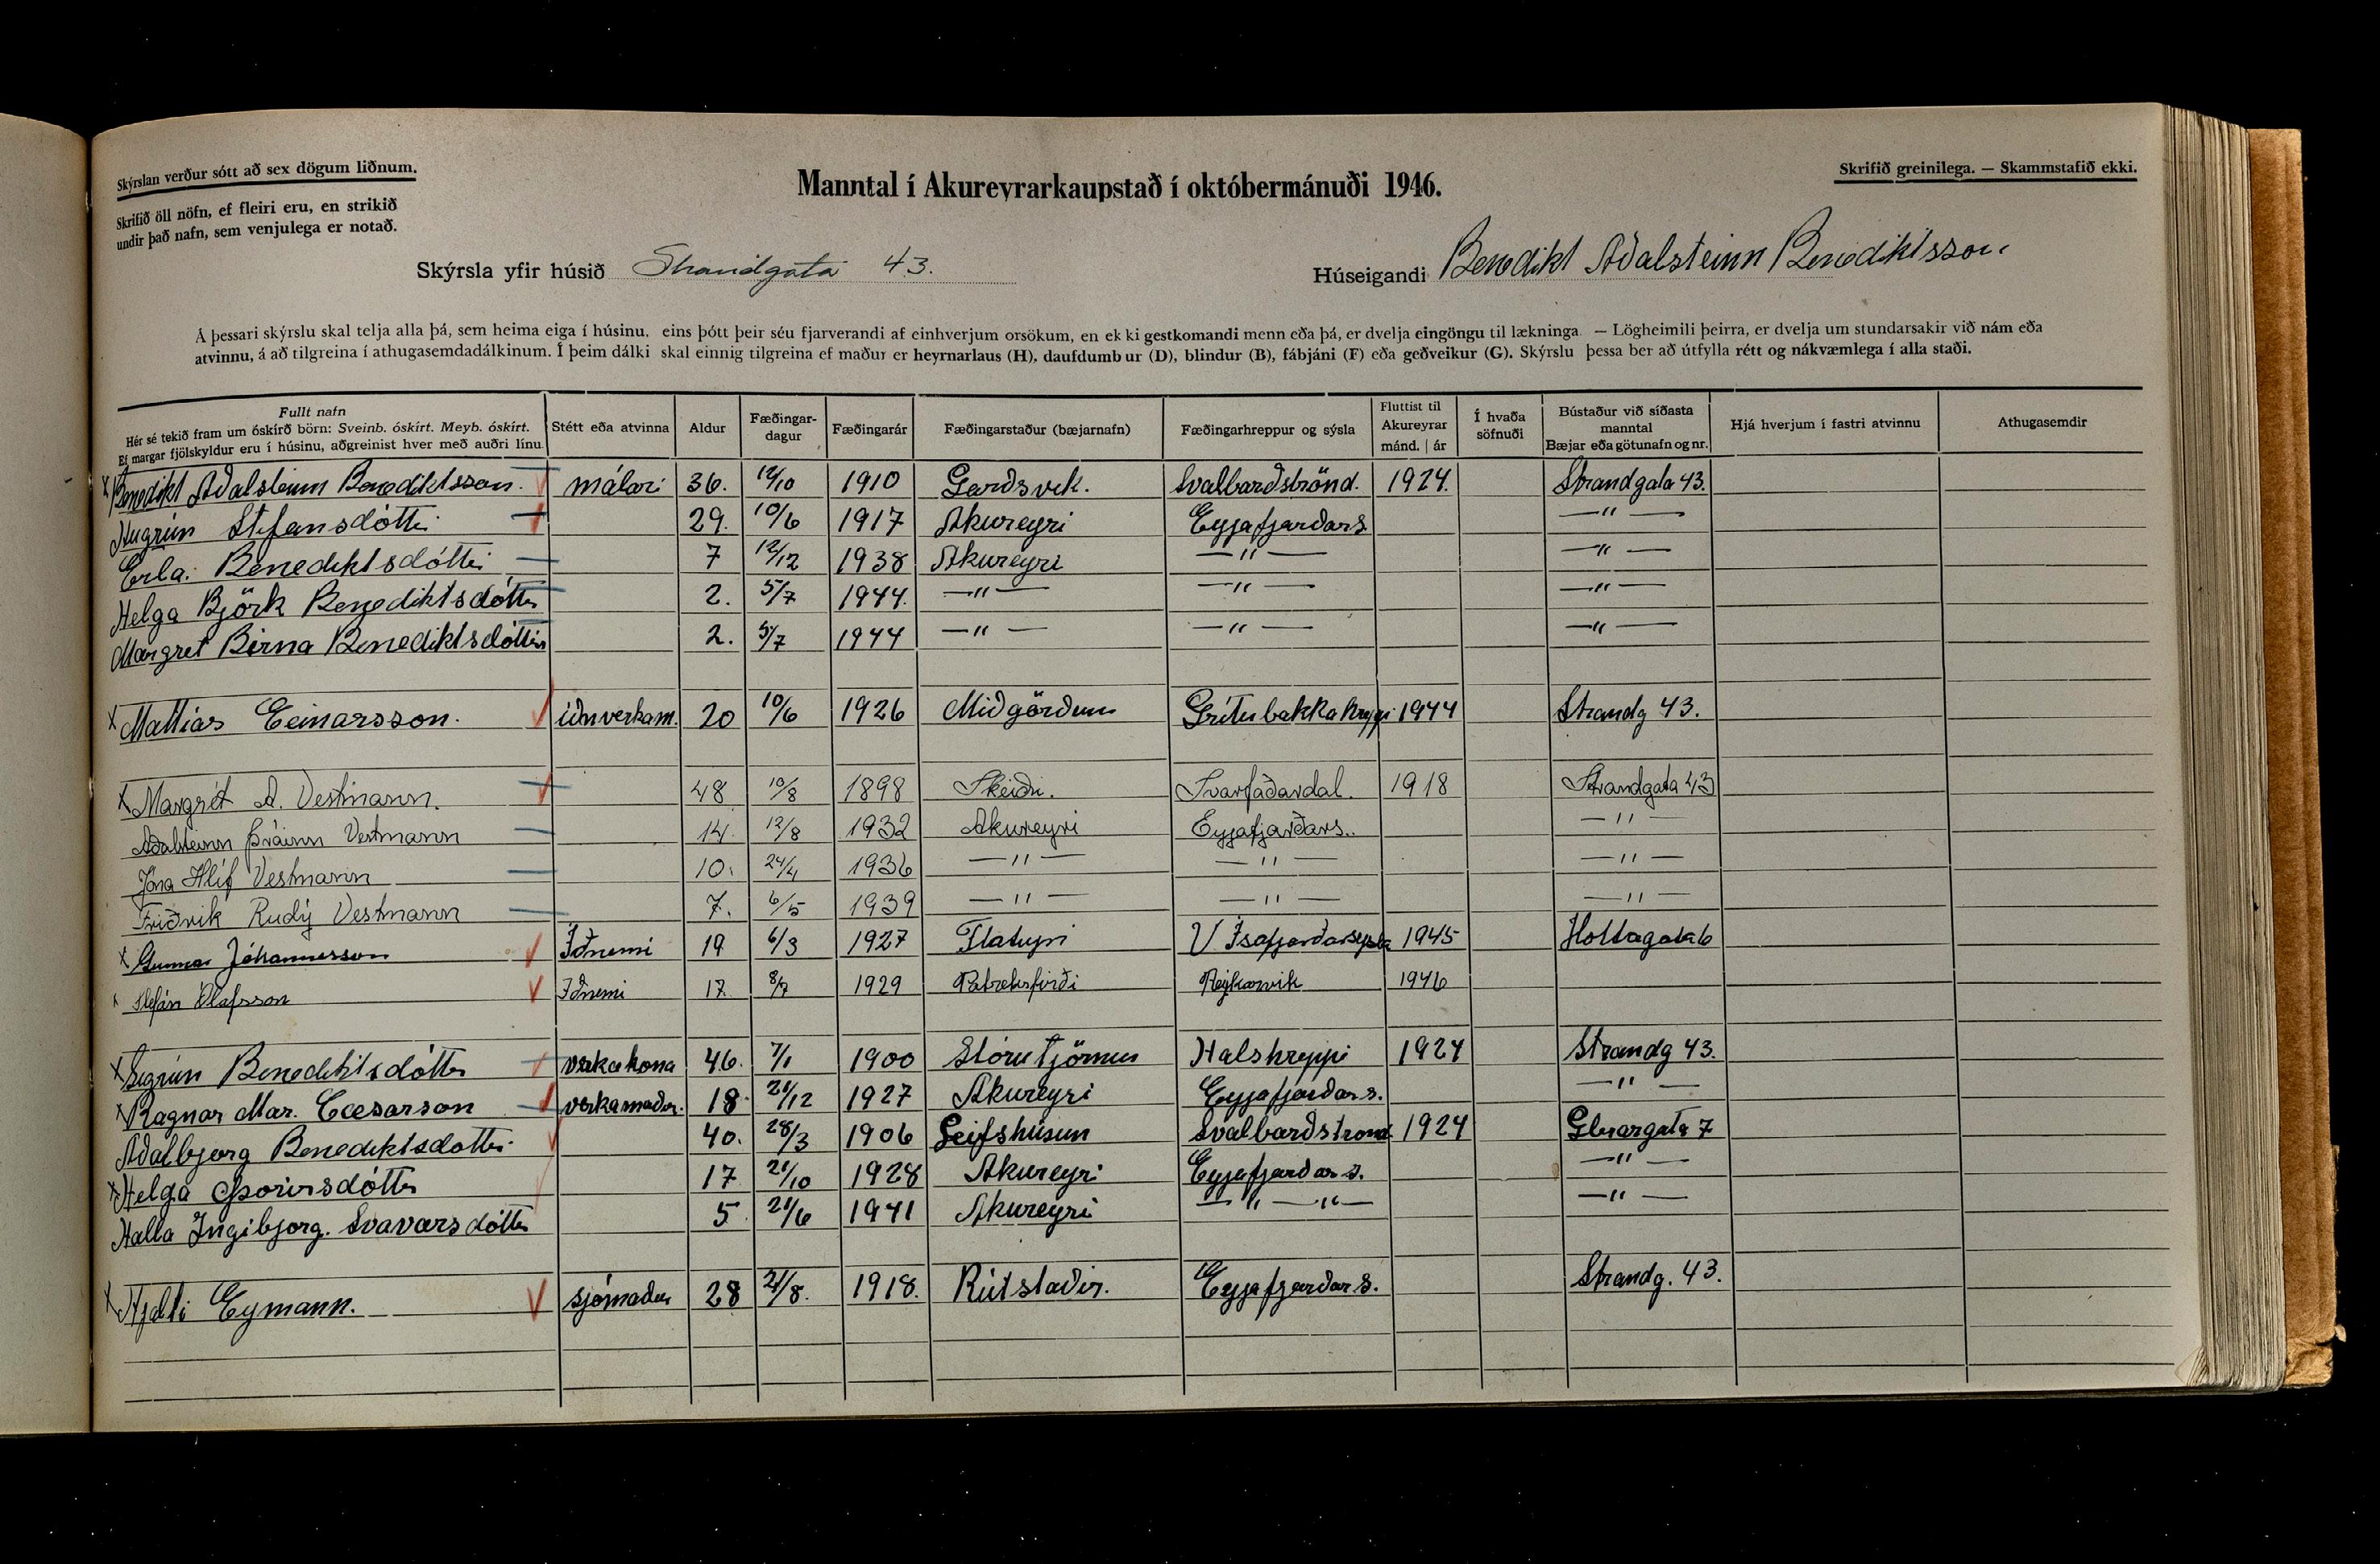 Skýrslan verður sótt að sex dögum liðnum.
Skrifið öll nöfn, ef fleiri eru, en strikið
undir það nafn, sem venjulega er notað.
Manntal í Akureyrarkaupstað í októbermánuði 1946.
Skrifið greinilega. — Skammstafið ekki.
Skýrsla yfir húsið Strandgata 43.
Húseigandi Benedikt Aðalsteinn Benediktsson
Á þessari skýrslu skal telja alla þá, sem heima eiga í húsinu, eins þótt þeir séu fjarverandi af einhverjum orsökum, en ekki gestkomandi menn eða þá, er dvelja eingöngu til lækninga. — Lögheimili þeirra, er dvelja um stundarsakir við nám eða
atvinnu, á að tilgreina í athugasemdadálkinum. Í þeim dálki skal einnig tilgreina ef maður er heyrnarlaus (H), daufdumbur (D), blindur (B), fábjáni (F) eða geðveikur (G). Skýrslu þessa ber að útfylla rétt og nákvæmlega í alla staði.
Fullt nafn
Hér sé tekið fram um óskírð börn: Sveinb. óskírt. Meyb. óskírt.
Ef margar fjölskyldur eru í húsinu, aðgreinist hver með auðri línu.
Stétt eða atvinna
Aldur
Fæðingar-
dagur
Fæðingarár
Fæðingarstaður (bæjarnafn)
Fæðingarhreppur og sýsla
Fluttist til
Akureyrar
mánd. | ár
Í hvaða
söfnuði
Bústaður við síðasta
manntal
Bæjar eða götunafn og nr.
Hjá hverjum í fastri atvinnu
Athugasemdir
x Benedikt Aðalsteinn Benediktsson. málari 36. 12/10 1910 Garðsvik. Svalbarðströnd. 1924. Strandgata 43.
Hugrún Stefansdóttir 29. 10/6 1917 Akureyri Eyjafjarðars. — " —
Erla. Benediktsdóttir 7 12/12 1938 Akureyri — " — — " —
Helga Björk Benediktsdóttir 2. 5/7 1944. — " — — " — — " —
Margret Birna Benediktsdóttir 2. 5/7 1944 — " — — " — — " —
x Mattias Einarsson. iðnverkam. 20 10/6 1926 Miðgörðum Grítubakkahrppi 1944 Strandg 43.
x Margrét A. Vestmann. 48 10/8 1898 Skeiði. Svarfaðardal. 1918 Strandgata 43
Aðalsteinn Þráinn Vestmann 14. 12/8 1932 Akureyri Eyjafjarðars. — " —
Jóna Hlíf Vestmann 10. 24/4 1936 — " — — " — — " —
Friðrik Rudý Vestmann 7. 6/5 1939 — " — — " — — " —
x Gunnar Jóhannesson Iðnemi 19 6/3 1927 Flateyri V Ísafjarðarsýsla 1945 Holtagata 6
x Stefán Ólafsson Iðnemi 17 8/7 1929 Patreksfirði Reykjavik 1946
x Sigrún Benediktsdóttir verkakona 46. 7/1 1900 Stórutjörnum Halshreppi 1924 Strandg 43.
x Ragnar Mar. Cæsarson verkamaður. 18 21/12 1927 Akureyri Eyjafjarðars. — " —
Aðalbjorg Benediktsdottir 40. 28/3 1906 Leifshúsum Svalbarðstrond 1924 Glerargata 7
x Helga Þorirsdóttir 17 21/10 1928 Akureyri Eyjafjarðars. — " —
Halla Ingibjorg. Svavarsdóttir 5 21/6 1941 Akureyri — " — " — — " —
x Hjalti Eymann. sjómaður 28 21/8. 1918. Rútstaðir. Eyjafjarðars. Strandg. 43.